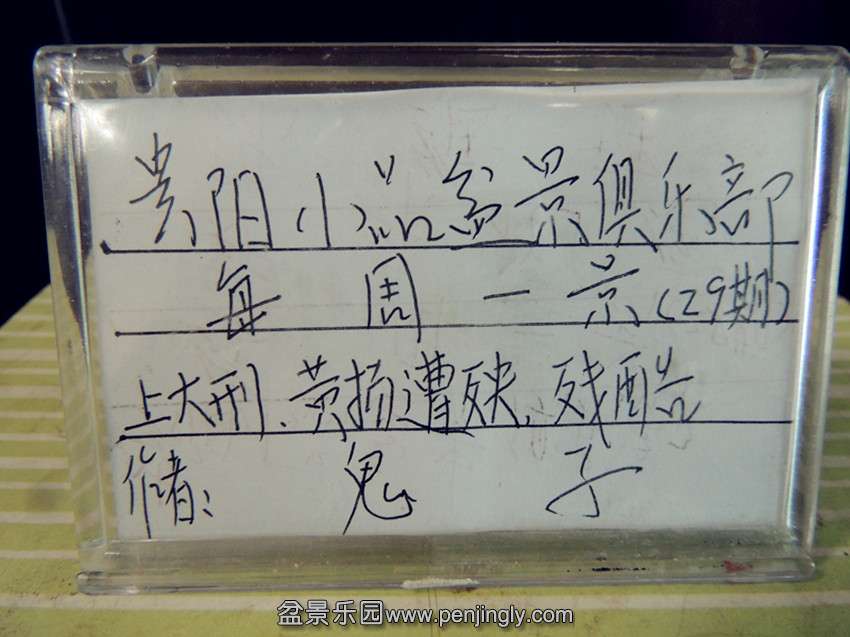 贵阳小品盆景俱乐部
每周一景(29期)
上大刑、黄扬遭殃、残酷
作者:鬼子
盆景乐园www.penjingly.com